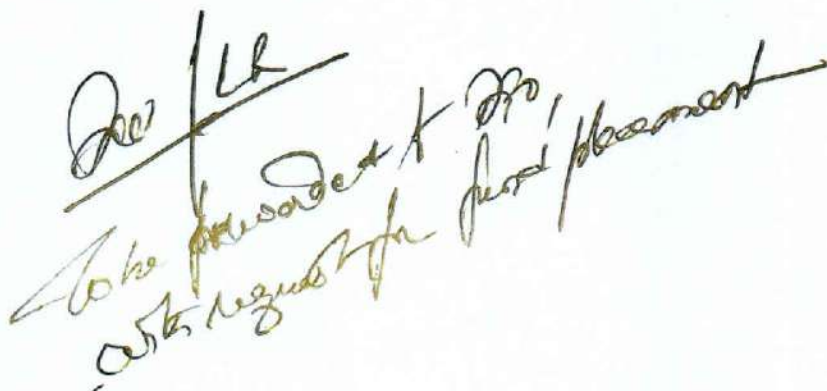 To be forwarded to
with request for fund placement